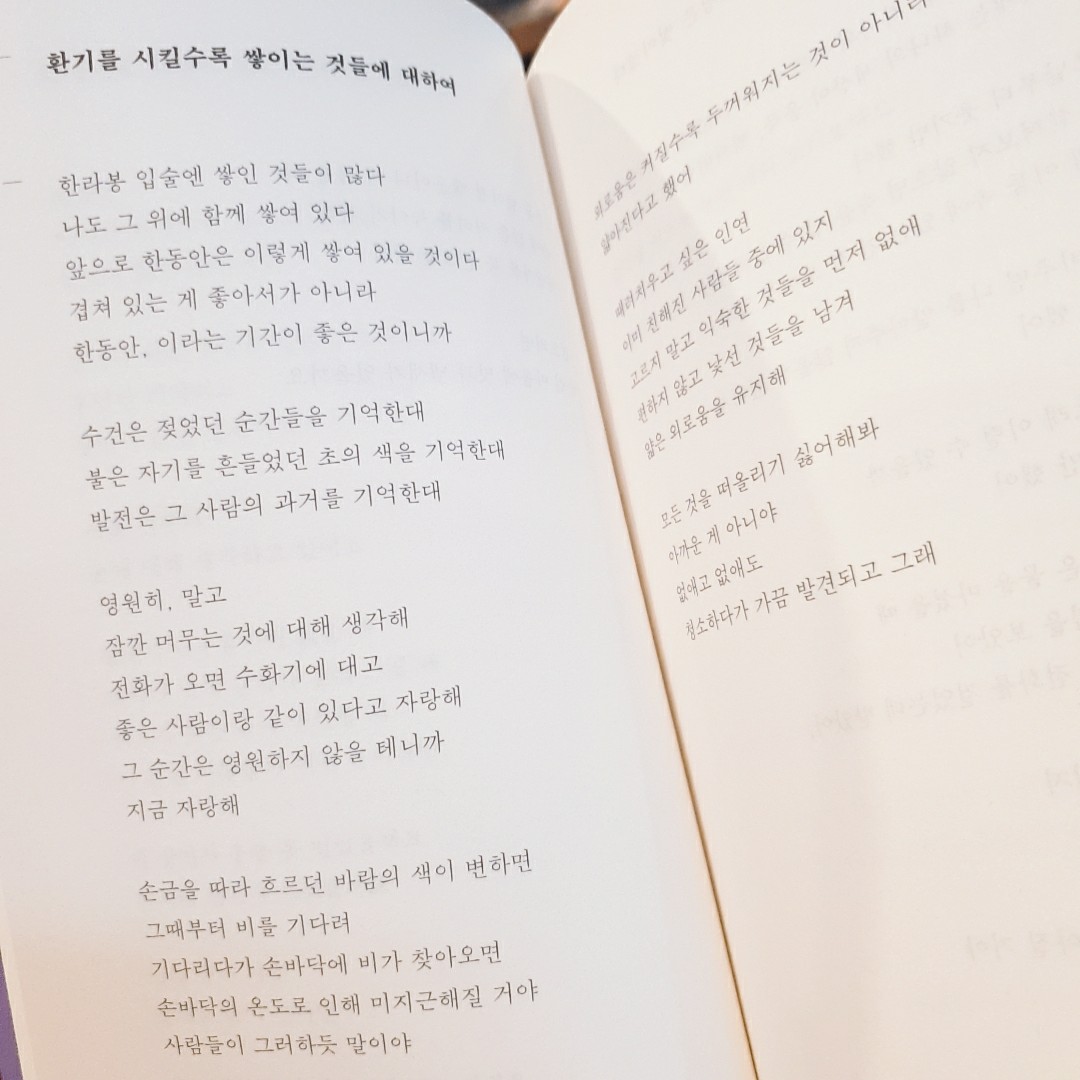 환기를 시킬수록 쌓이는 것들에 대하여
한라봉 입술엔 쌓인 것들이 많다
나도 그 위에 함께 쌓여 있다
앞으로 한동안은 이렇게 쌓여 있을 것이다
겹쳐 있는 게 좋아서가 아니라
한동안, 이라는 기간이 좋은 것이니까
수건은 젖었던 순간들을 기억한대
불은 자기를 흔들었던 초의 색을 기억한대
발전은 그 사람의 과거를 기억한대
영원히, 말고
잠깐 머무는 것에 대해 생각해
전화가 오면 수화기에 대고
좋은 사람이랑 같이 있다고 자랑해
그 순간은 영원하지 않을 테니까
지금 자랑해
손금을 따라 흐르던 바람의 색이 변하면
그때부터 비를 기다려
기다리다가 손바닥에 비가 찾아오면
손바닥의 온도로 인해 미지근해질 거야
사람들이 그러하듯 말이야
외로움은 커질수록 두꺼워지는 것이 아니라
얇아진다고 했어
때려치우고 싶은 인연
이미 친해진 사람들 중에 있지
고르지 말고 익숙한 것들을 먼저 없애
편하지 않고 낯선 것들을 남겨
얇은 외로움을 유지해
모든 것을 떠올리기 싫어해봐
아까운 게 아니야
없애고 없애도
청소하다가 가끔 발견되고 그래